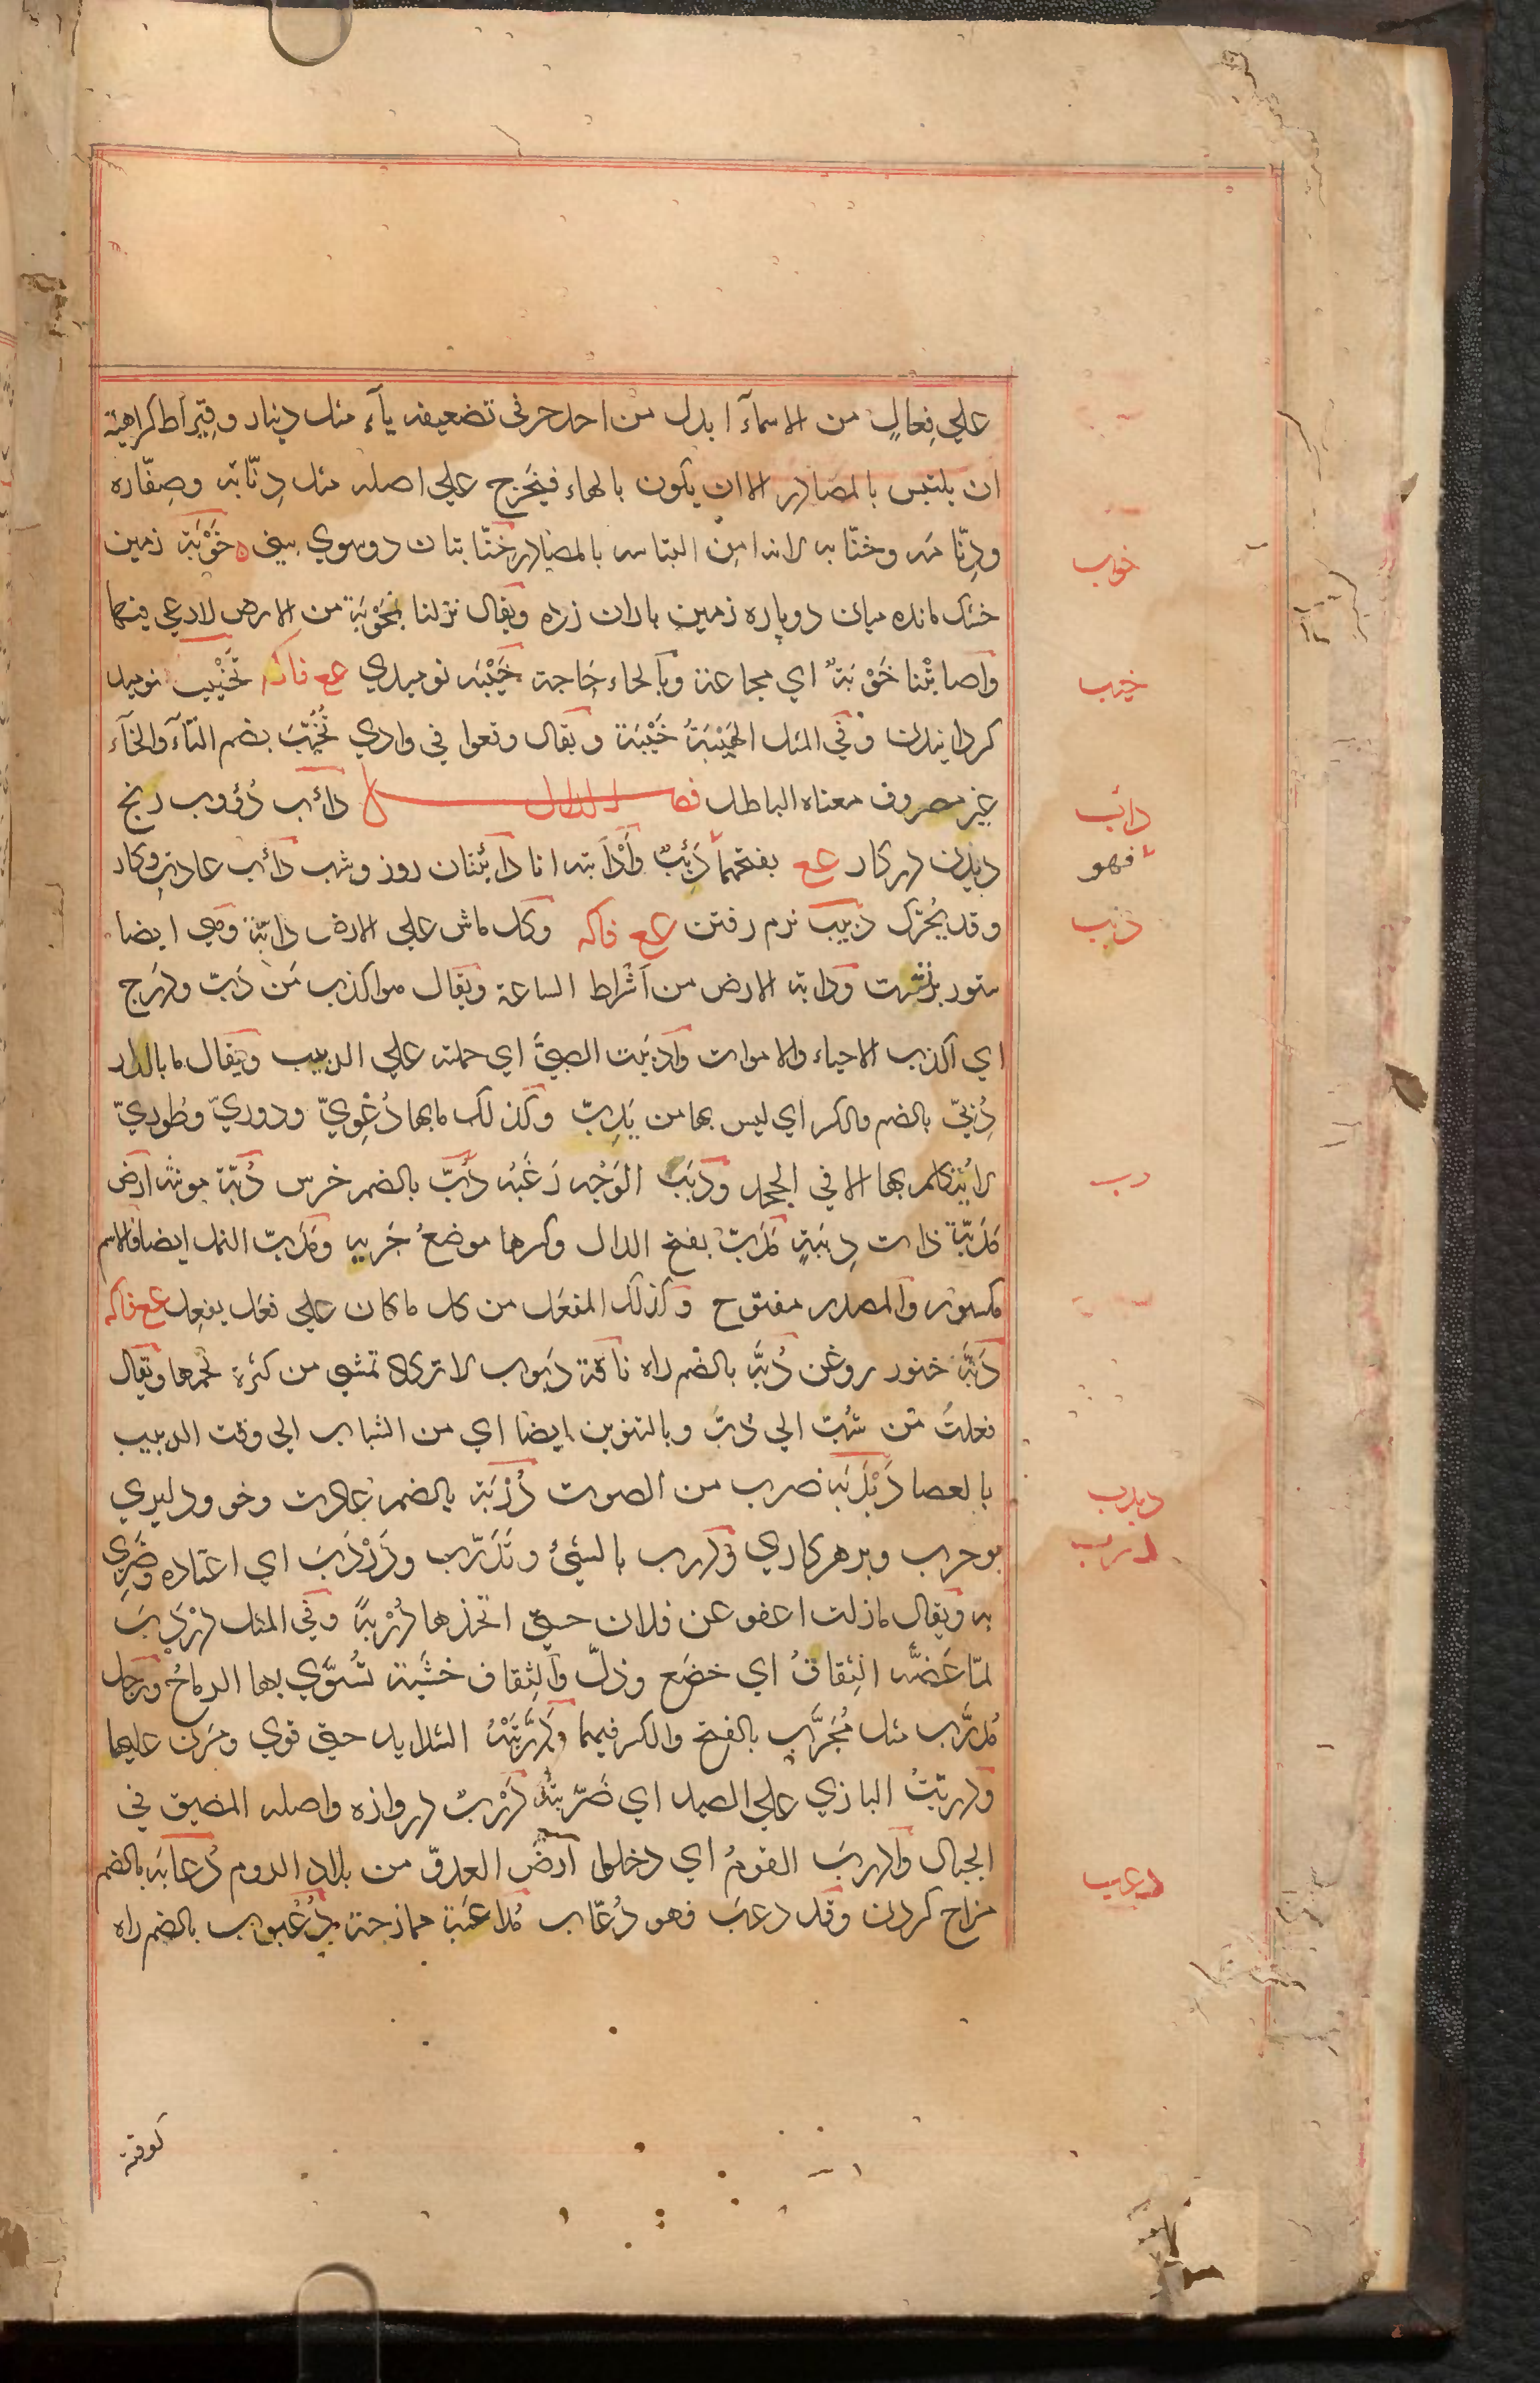 علي فِعالٍ من الاسمآء ابدل من احد حرفي تضعيفه يآء مثل دينار وقيراط كراهية
ان يلتبس بالمصادر الا ان يكون بالهاء فيخرج علي اصله مثل دِنّابة وصِنّاره
ودِنّامه وخنّابه لانه امن التباسه بالمصادر خنّابتان دو سوي بيني خَوْبَة زمين
خوب
خشك مانده ميان دو پاره زمين باران زده ويقال نزلنا بخَوْبَة من الارض لا رعي فيها
واصابتْنا خَوْبَةٌ اي مجاعة وبالحاء حَاجة خَيْبَه نوميدي عع فاكه تَخْييب نوميد
خيب
كردانيدن وفي المثل الهَيْبَةُ خَيْبَة ويقال وقعوا في وادي تُخُيّبَ بضم التآء والخآء
غير مصروف معناه الباطل فصل الدال دائب دُؤوب رنج
دائب
ديدن در كار عع بفتحهما دَئِبٌ وأَدْأبَته انا دائبان روز وشب دأب عادت وكار
فهو
وقد يُحرّك دَبيب نرم رفتن عع فاكه وكل ماش علي الارض دابّة وهي ايضا
دبب
ستور برنشست ودابة الارض من اَشْراط الساعة ويقال هو اكذب مَن دَبّ ودَرَج
اي اكذب الاحياء والاموات وأدبَبت الصبيَّ اي حملته علي الدبيب ويقال ما بالدار
دُبّيّ بالضم والكسر اي ليس بها من يَدِبّ وكذلك ما بها دُعْويّ ودوريّ وطُوريّ
لا يُتكلم بها الا في الجحد ودَبَب الوَجْه زَغَبُه دُبّ بالضم خرس دُبّة مونثه ارض
دب
مَدَبّة ذات دِبَبَةٍ مَدَبّ بفتح الدال وكسرها موضعُ جَريه ومَدبّ النمل ايضا فالاسم
مكسور والمصدر مفتوح وكذلك المفعَل من كل ما كان علي فعَل يفعِل عع فاكه
دَبَّة خنور روغن دُبَّة بالضم راه ناقة دَبوب لا تكاد تمشي من كثرة لحمها ويقال
فعلتَ مِن شُبَّ الي دُبَّ وبالتنوين ايضا اي من الشباب الي وقت الدبيب
بالعصا دَبْدَبَة ضرب من الصوت دُرْبَة بالضم عادت وخو ودليري
دبدب
بو حرب وبر هر كاري ودرب بالشيء وتَدَرّب ودَرْدَبَ اي اعتاده وضَرِي
درب
به ويقال ما زلت اعفو عن فلان حتي اتخذها دُرْبةً وفي المثل دَرْدَبَ
لمّا عَضَّه الثِقافُ اي خضَع وذلّ والثِقاف خشَبة تُسَوّي بها الرماحُ ورجل
مُدرَّب مثل مُجَرَّب بالفتح والكسر فيهما ودَرَّبَتْهُ الشدايد حتي قوي ومَرَن عليها
ودرّبتُ البازي علي الصيد اي ضَرّيتُه دَرْبٌ دروازه واصله المضيق في
الجبال وادربَ القومُ اي دخلوا ارضَ العدوّ من بلاد الروم دُعابَه بالضم
دعب
مزاح كردن وقد دعبَ فهو دُعّاب مُداعَبَة ممازحة دُعْبوب بالضم راه
كوفته